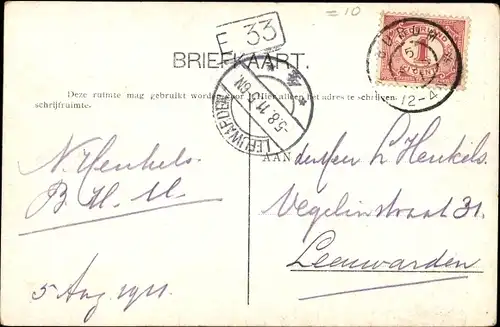 =10
E 33
BRIEFKAART.
LEEUWARDEN 5.8.11. 6N
1
12-4
Deze ruimte mag gebruikt worden voor
schrijfruimte.
Hier alleen het adres te schrijven.
N. Henkels.
B. H. M.
5 Aug. 1911.
AAN den Heer L Henkels.
Vegelinstraat 31.
Leeuwarden